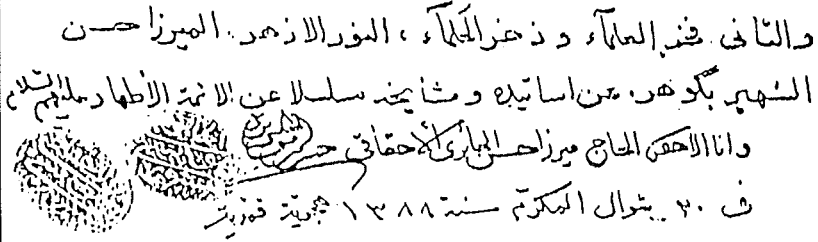 والثانى فخر العلمآء و ذخر الحكمآء ، النور الازهر الميرزا حسن
الشهير بگوهر، عن اساتيذه و مشايخه سلسلا عن الائمة الأطهار عليهم السلام
وانا الاحقر المحتاج ميرزا حسن الحائرى الأحقاقى
فى ٣٠ شوال المكرّم سنة ١٣٨٨ هجرية قمرية